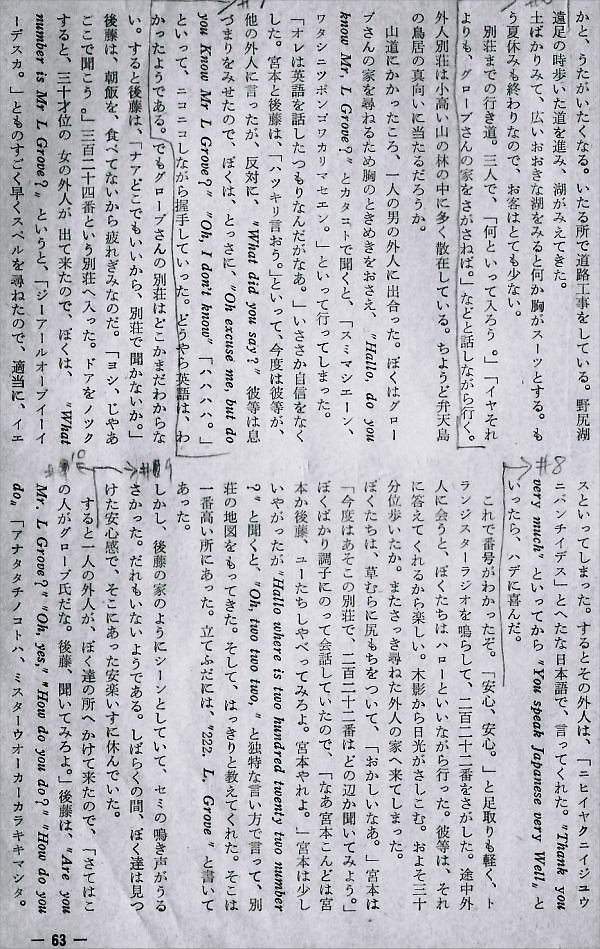 かと、うたがいたくなる。いたる所で道路工事をしている。野尻湖
遠足の時歩いた道を進み、湖がみえてきた。
土ばかりみて、広いおおきな湖をみると何か胸がスーツとする。も
う夏休みも終わりなので、お客はとても少ない。
別荘までの行き道。三人で、「何といって入ろう。」「イヤそれ
よりも、グローブさんの家をさがさねば。」などと話しながら行く。
外人別荘は小高い山の林の中に多く散在している。ちようど弁天島
の鳥居の真向いに当たるだろうか。
山道にかかったころ、一人の男の外人に出合った。ぼくはグロー
ブさんの家を尋ねるため胸のときめきをおさえ、"Hallo, do you
know Mr. L Grove?"とカタコトで聞くと、「スミマシエーン、
ワタシニツポンゴワカリマセエン。」といって行ってしまった。
「オレは英語を話したつもりなんだがなあ。」いささか自信をなく
した。宮本と後藤は、「ハツキリ言おう。」といって、今度は彼等が、
他の外人に言ったが、反対に、"What did you say?"彼等は息
づまりをみせたので、ぼくは、とっさに、"Oh excuse me, but do
you Know Mr L Grove?""Oh, I don't know"「ハハハハ。」
といって、ニコニコしながら握手していった。どうやら英語は、わ
かったようである。でもグローブさんの別荘はどこかまだわからな
い。すると後藤は、「ナア、どこでもいいから、別荘で聞かないか。」
後藤は、朝飯を、食べてないから疲れぎみなのだ。「ヨシ、じゃあ
ここで聞こう。」三百二十四番という別荘へ入った。ドアをノック
すると、三十才位の女の外人が出て来たので、ぼくは、"What
number is Mr L Grove?"というと、「ジーアルオーブイーイ
ーデスカ。」とものすごく早くスペルを尋ねたので、適当に、イエ
#8
スといってしまった。するとその外人は、「ニヒイヤクニイジユウ
ニバンチイデス」とへたな日本語で、言ってくれた。"Thank you
very much"といってから"You speak Japanese very Well,"と
いったら、ハデに喜んだ。
これで番号がわかったぞ。「安心、安心。」と足取りも軽く、ト
ランジスターラジオを鳴らして、二百二十二番をさがした。途中外
人に会うと、ぼくたちはハローといいながら行った。彼等は、それ
に答えてくれるから楽しい。木影から日光がさしこむ。およそ三十
分位歩いたか。またさっき尋ねた外人の家へ来てしまった。
ぼくたちは、草むらに尻もちをついて、「おかしいなあ。」宮本は
「今度はあそこの別荘で、二百二十二番はどの辺か聞いてみよう。」
ぼくばかり調子にのって会話していたので、「なあ宮本こんどは宮
本か後藤、ユーたちしやべってみろよ。宮本やれよ。」宮本は少し
いやがったが"Hallo where is two hundred twenty two number
?"と聞くと、"Oh, two two two,"と独特な言い方で言って、別
荘の地図をもってきた。そして、はっきりと教えてくれた。そこは
一番高い所にあった。立てふだには、"222. L. Grove"と書いて
あった。
#9
しかし、後藤の家のようにシーンとしていて、セミの鳴き声がうる
さかった。だれもいないようである。しばらくの間、ぼく達は見つ
けた安心感で、そこにあった安楽いすに休んでいた。
#10
すると一人の外人が、ぼく達の所へかけて来たので、「さてはこ
の人がグローブ氏だな。後藤、聞いてみろよ。」後藤は、"Are you
Mr. L Grove?""Oh, yes,""How do you do?""How do you
do,"「アナタタチノコトハ、ミスターウオーカーカラキキマシタ。
— 63 —